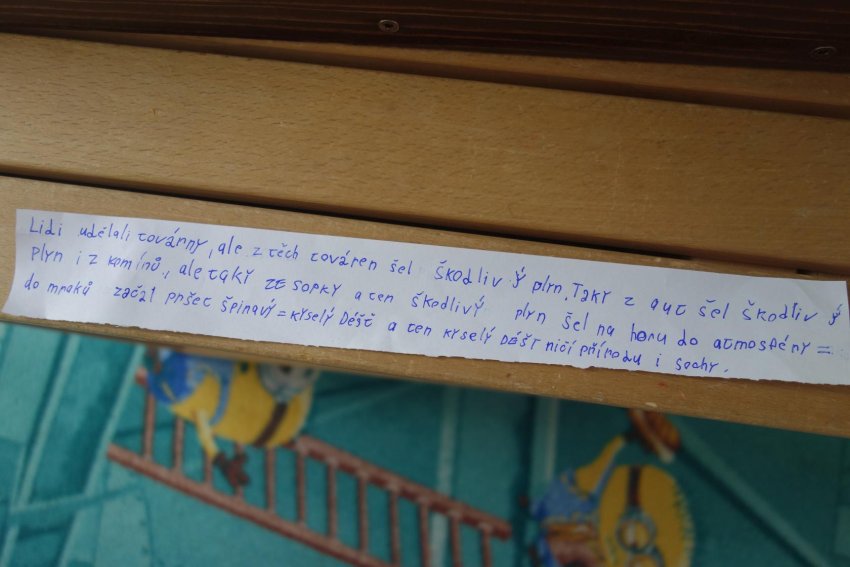 Lidi udělali továrny, ale z těch továren šel škodlivý plyn. Taky z aut šel škodlivý
plyn i z komínů, ale taky ze sopky a ten škodlivý plyn šel na horu do atmosféry =
do mraků začal pršet špinavý = kyselý déšť a ten kyselý déšť ničí přírodu i sochy.